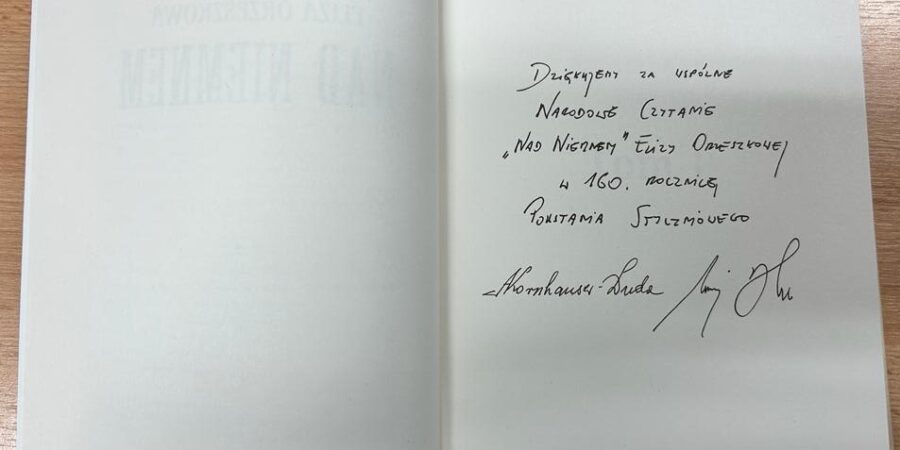 ELIZA ORZESZKOWA
NAD NIEMNEM
DZIĘKUJEMY ZA WSPÓLNE
NARODOWE CZYTANIE
„NAD NIEMNEM” ELIZY ORZESZKOWEJ
W 160. ROCZNICĘ
POWSTANIA STYCZNIOWEGO
AKornhauser-Duda